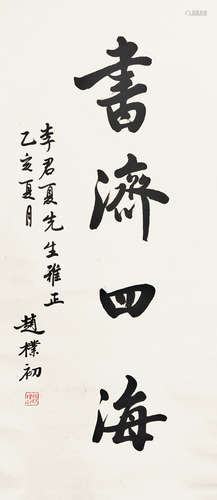 書濟四海
李君夏先生雅正
乙亥夏月
趙樸初